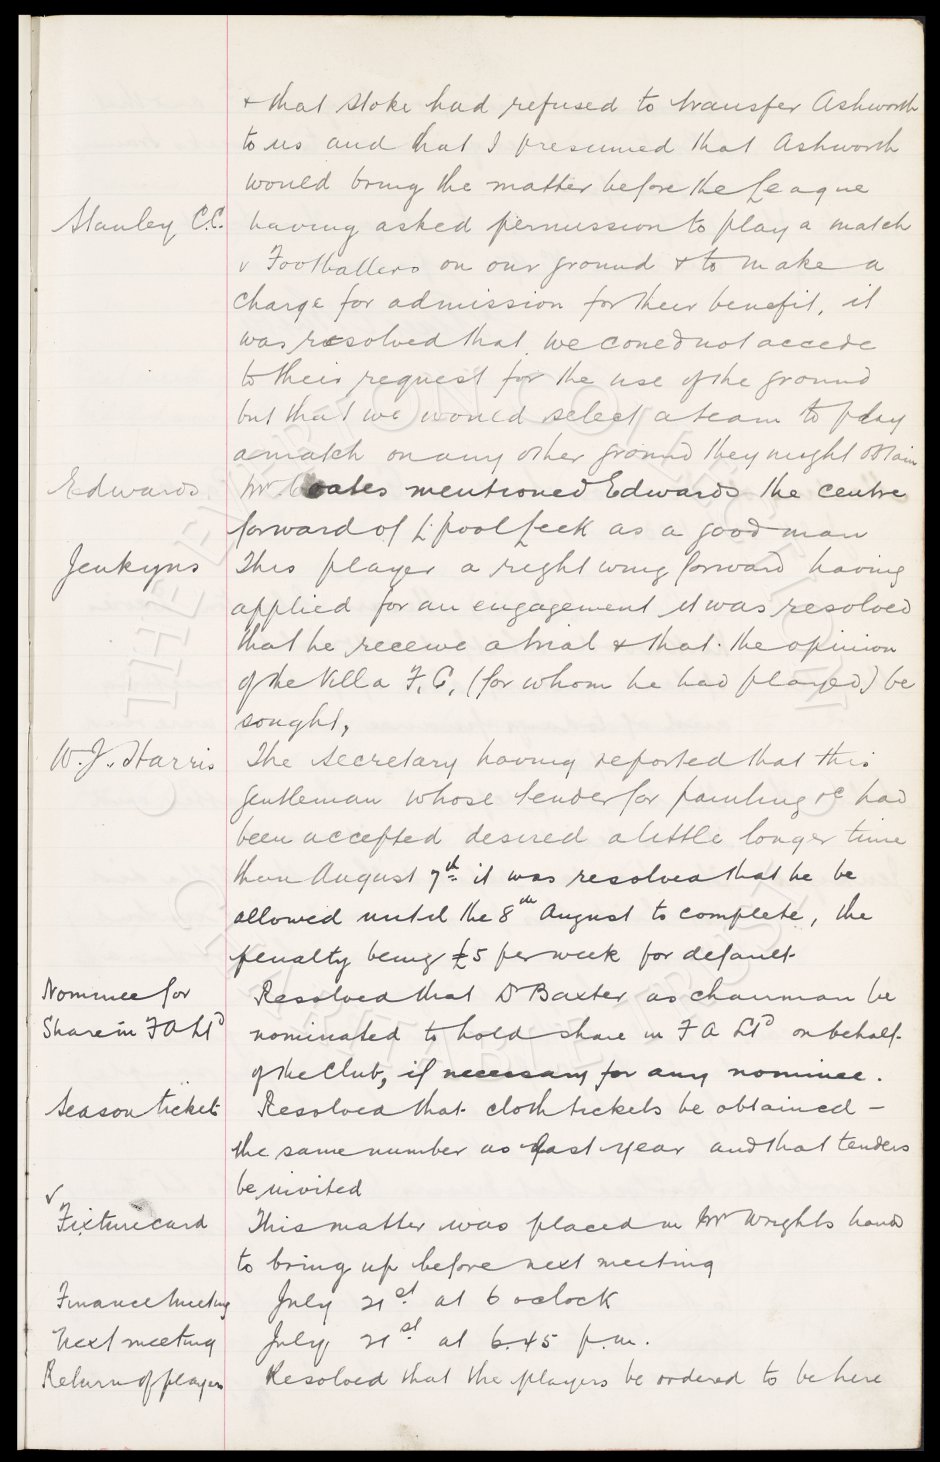 & that Stoke had refused to transfer Ashworth
to us and that I presumed that Ashworth
would bring the matter before the League
Stanley C.C. having asked permission to play a match
v Footballers on our ground & to make a
charge for admission for their benefit, it
was resolved that we could not accede
to their request for the use of the ground
but that we would select a team to play
a match on any other ground they might obtain
Edwards Mr Coates mentioned Edwards the centre
forward of L'pool Leek as a good man
Jenkyns This player a right wing forward having
applied for an engagement it was resolved
that he receive a trial & that the opinion
of the Villa F.C. (for whom he had played) be
sought,
W. J. Harris The Secretary having reported that this
gentleman whose tender for painting &c had
been accepted desired a little longer time
than August 7th it was resolved that he be
allowed until the 8th August to complete, the
penalty being £5 per week for default.
Nominee for Resolved that Dr Baxter as chairman be
Share in F A Ltd nominated to hold share in F A Ltd on behalf
of the Club, if necessary for any nominee.
Season tickets Resolved that cloth tickets be obtained –
the same number as last year and that tenders
be invited
✓
Fixture card This matter was placed in Mr Wrights hands
to bring up before next meeting
Finance Meeting July 21st at 6 oclock
Next meeting July 21st at 6.45 p.m.
Return of players Resolved that the players be ordered to be here